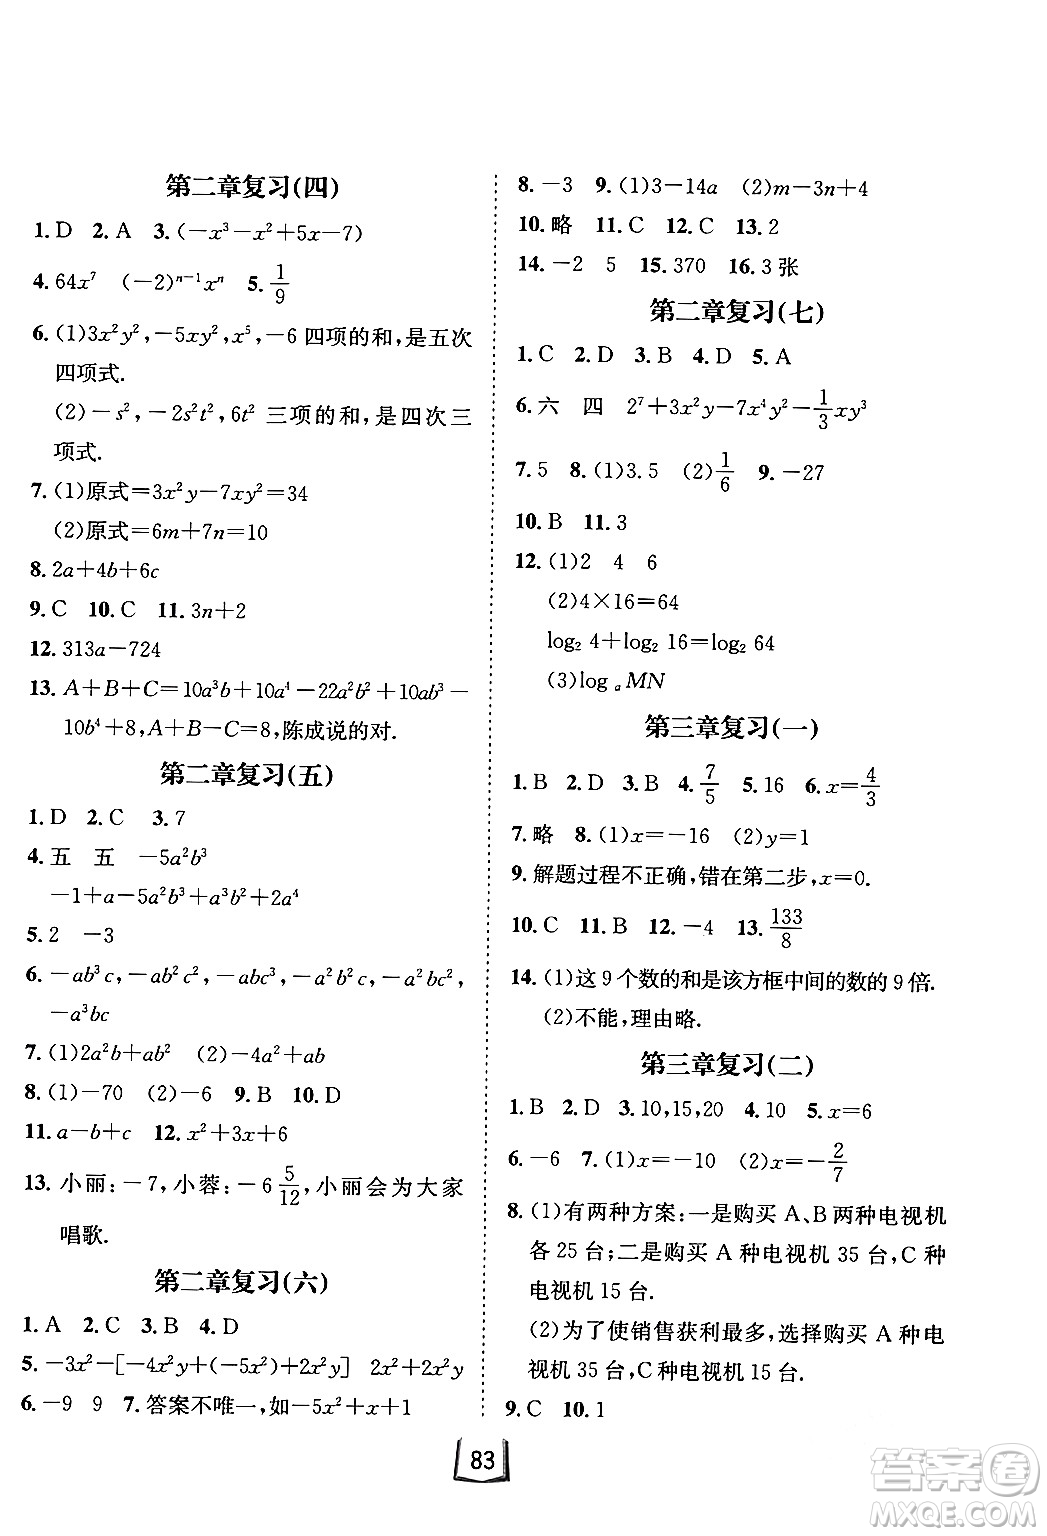 第二章复习(四)
1. D 2. A 3. (－x³－x²＋5x－7)
4. 64x⁷ (－2)ⁿ⁻¹xⁿ 5. 1/9
6. (1)3x²y², －5xy², x⁵, －6 四项的和,是五次
四项式.
(2)－s², －2s²t², 6t² 三项的和,是四次三
项式.
7. (1)原式＝3x²y－7xy²＝34
(2)原式＝6m＋7n＝10
8. 2a＋4b＋6c
9. C 10. C 11. 3n＋2
12. 313a－724
13. A＋B＋C＝10a³b＋10a⁴－22a²b²＋10ab³－
10b⁴＋8,A＋B－C＝8,陈成说的对.
第二章复习(五)
1. D 2. C 3. 7
4. 五 五 －5a²b³
－1＋a－5a²b³＋a³b²＋2a⁴
5. 2 －3
6. －ab³c,－ab²c²,－abc³,－a²b²c,－a²bc²,
－a³bc
7. (1)2a²b＋ab² (2)－4a²＋ab
8. (1)－70 (2)－6 9. B 10. D
11. a－b＋c 12. x²＋3x＋6
13. 小丽:－7,小蓉:－6 5/12,小丽会为大家
唱歌.
第二章复习(六)
1. A 2. C 3. B 4. D
5. －3x²－[－4x²y＋(－5x²)＋2x²y] 2x²＋2x²y
6. －9 9 7. 答案不唯一,如－5x²＋x＋1
8. －3 9. (1)3－14a (2)m－3n＋4
10. 略 11. C 12. C 13. 2
14. －2 5 15. 370 16. 3 张
第二章复习(七)
1. C 2. D 3. B 4. D 5. A
6. 六 四 2⁷＋3x²y－7x⁴y²－1/3xy³
7. 5 8. (1)3.5 (2)1/6 9. －27
10. B 11. 3
12. (1)2 4 6
(2)4×16＝64
log₂ 4＋log₂ 16＝log₂ 64
(3)logₐMN
第三章复习(一)
1. B 2. D 3. B 4. 7/5 5. 16 6. x＝4/3
7. 略 8. (1)x＝－16 (2)y＝1
9. 解题过程不正确,错在第二步,x＝0.
10. C 11. B 12. －4 13. 133/8
14. (1)这 9 个数的和是该方框中间的数的 9 倍.
(2)不能,理由略.
第三章复习(二)
1. B 2. D 3. 10,15,20 4. 10 5. x＝6
6. －6 7. (1)x＝－10 (2)x＝－2/7
8. (1)有两种方案:一是购买 A、B 两种电视机
各 25 台;二是购买 A 种电视机 35 台,C 种
电视机 15 台.
(2)为了使销售获利最多,选择购买 A 种电
视机 35 台,C 种电视机 15 台.
9. C 10. 1
83
答案卷
MXQE.COM